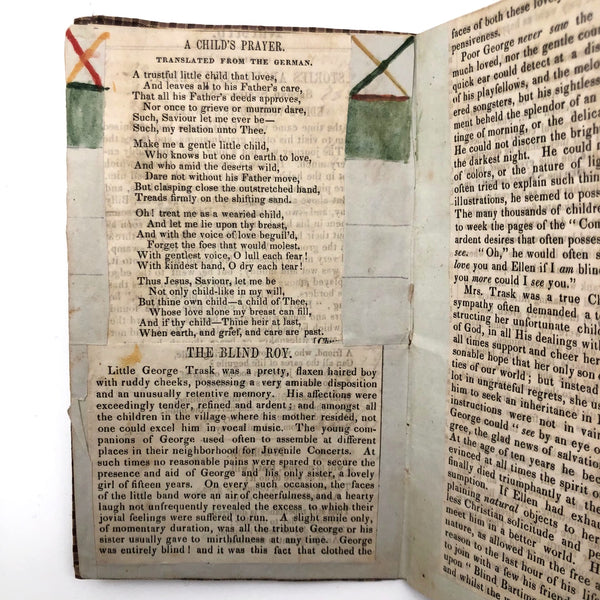 A CHILD'S PRAYER.
TRANSLATED FROM THE GERMAN.
A trustful little child that loves,
And leaves all to his Father's care,
That all his Father's deeds approves,
Nor once to grieve or murmur dare,
Such, Saviour let me ever be—
Such, my relation unto Thee.
Make me a gentle little child,
Who knows but one on earth to love,
And who amid the deserts wild,
Dare not without his Father move,
But clasping close the outstretched hand,
Treads firmly on the shifting sand.
Oh! treat me as a wearied child,
And let me lie upon thy breast,
And with the voice of love beguil'd,
Forget the foes that would molest.
With gentlest voice, O lull each fear!
With kindest hand, O dry each tear!
Thus Jesus, Saviour, let me be
Not only child-like in my will,
But thine own child—a child of Thee,
Whose love alone my breast can fill,
And if thy child—Thine heir at last,
When earth, and grief, and care are past.
THE BLIND ROY.
Little George Trask was a pretty, flaxen haired boy
with ruddy cheeks, possessing a very amiable disposition
and an unusually retentive memory. His affections were
exceedingly tender, refined and ardent; and amongst all
the children in the village where his mother resided, not
one could excel him in vocal music. The young com-
panions of George used often to assemble at different
places in their neighborhood for Juvenile Concerts. At
such times no reasonable pains were spared to secure the
presence and aid of George and his only sister, a lovely
girl of fifteen years. On every such occasion, the faces
of the little band wore an air of cheerfulness, and a hearty
laugh not unfrequently revealed the excess to which their
jovial feelings were suffered to run. A slight smile only,
of momentary duration, was all the tribute George or his
sister usually gave to mirthfulness at any time. George
was entirely blind! and it was this fact that clothed the
faces of both these lovely
pensiveness.
Poor George never saw the
much loved, nor the gentle coun
quick ear could detect at a dis
of his playfellows, and the melo
ered songsters, but his sightless
ment beheld the splendor of an
tinge of morning, or the delica
He could not discern the bright
the darkest night. He could n
of colors, or the nature of lig
often tried to explain such thing
illustrations, he seemed to poss
The many thousands of childre
to week the pages of the "Con
ardent desires that often posses
see. "Oh," he would often s
love you and Ellen if I am blin
you more could I see you."
Mrs. Trask was a true Ch
sympathy often demanded a t
structing her unfortunate child
of God, in all His dealings with
all times support and cheer her
sonable hope that her only son
ties of our world; but instead
lot in ungrateful regrets, she us
him to seek an inheritance in
instructions were not in vain
George could "see by an eye o
gree, the glad news of salvatio
At the age of ten years he bec
evinced at all times the spirit o
finally died triumphantly at the
sumption. If Ellen had exhau
plaining natural objects to her
less Christian solicitude and pe
meet him in a better world.
nature, as allowed him the free a
reason to the last hour of his life
to join with a few his friend
upon "Blind Bartim
and whilst the